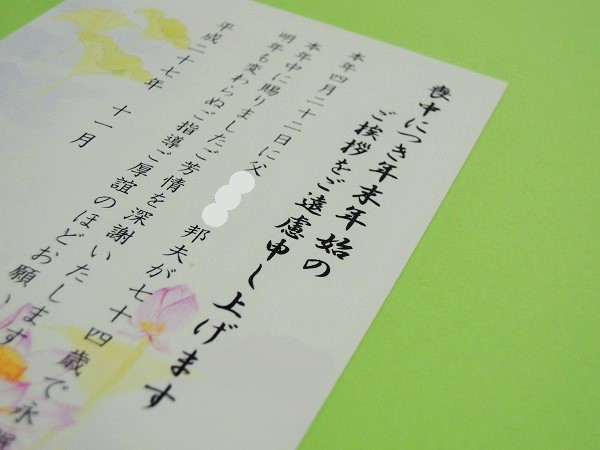 喪中につき年末年始の
ご挨拶をご遠慮申し上げます
本年四月二十二日に父 邦夫が七十四歳で永
本年中に賜りましたご芳情を深謝いたします
明年も変わらぬご指導ご厚誼のほどお願い
平成二十七年 十一月